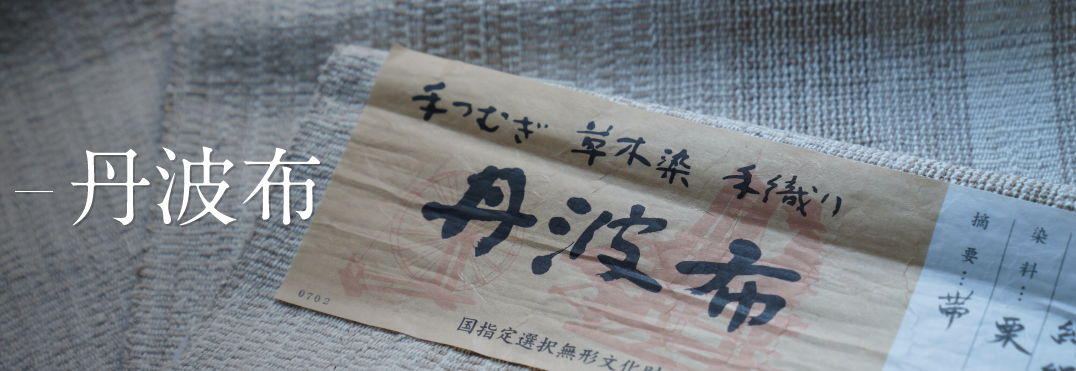 丹波布
手つむぎ 草木染 手織り
丹波布
6702
国指定選択無形文化財
染料…
栗
摘要…帯